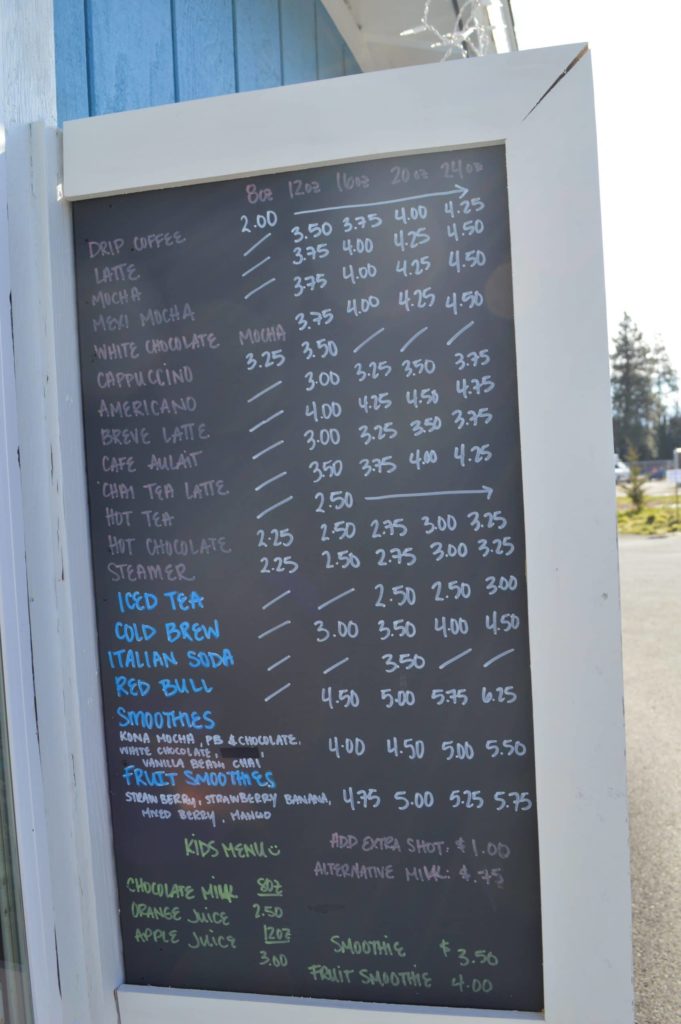 8oz 12oz 16oz 20oz 24oz
DRIP COFFEE 2.00 →
LATTE / 3.50 3.75 4.00 4.25
MOCHA / 3.75 4.00 4.25 4.50
MEXI MOCHA / 3.75 4.00 4.25 4.50
WHITE CHOCOLATE MOCHA 3.75 4.00 4.25 4.50
CAPPUCCINO 3.25 3.50 / / /
AMERICANO / 3.00 3.25 3.50 3.75
BREVE LATTE / 4.00 4.25 4.50 4.75
CAFE AULAIT / 3.00 3.25 3.50 3.75
CHAI TEA LATTE / 3.50 3.75 4.00 4.25
HOT TEA / 2.50 →
HOT CHOCOLATE 2.25 2.50 2.75 3.00 3.25
STEAMER 2.25 2.50 2.75 3.00 3.25
ICED TEA / / 2.50 2.50 3.00
COLD BREW / 3.00 3.50 4.00 4.50
ITALIAN SODA / / 3.50 / /
RED BULL / 4.50 5.00 5.75 6.25
SMOOTHIES
KONA MOCHA, PB & CHOCOLATE,
WHITE CHOCOLATE, , 4.00 4.50 5.00 5.50
VANILLA BEAN, CHAI
FRUIT SMOOTHIES
STRAWBERRY, STRAWBERRY BANANA, 4.75 5.00 5.25 5.75
MIXED BERRY, MANGO
KIDS MENU
CHOCOLATE MILK 8oz
ORANGE JUICE 2.50
APPLE JUICE 12oz
3.00
ADD EXTRA SHOT: $1.00
ALTERNATIVE MILK: $.75
SMOOTHIE $3.50
FRUIT SMOOTHIE 4.00